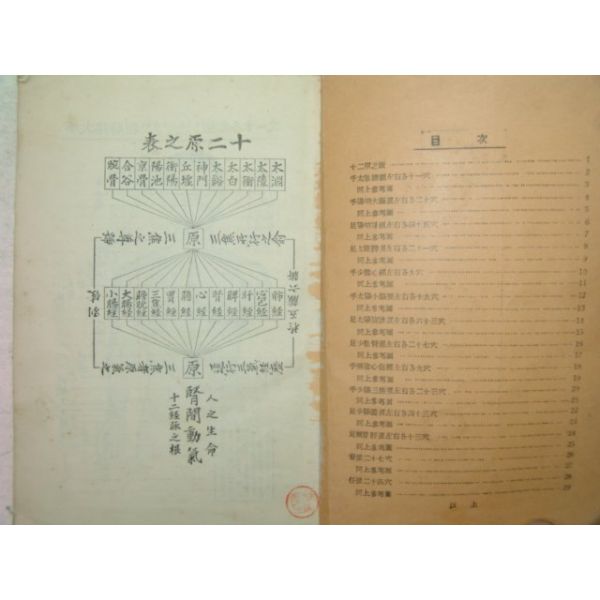 十二原之表
太淵
太陵
太衝
太白
太谿
神門
丘墟
衝陽
陽池
京骨
合谷
腕骨
原
三焦之尊號
肺経
肝経
脾経
腎経
心経
膽経
胃経
膀胱経
大腸経
小腸経
原
人之生命
腎間動氣
十二経脉之根
目 次
十二原之圖 1
手太陰肺經左右各十一穴 2
同上奇穴圖 3
手陽明大腸經左右各二十穴 4
同上奇穴圖 5
足陽明胃經左右各四十五穴 6
同上奇穴圖 7
足太陰脾經左右各二十一穴 8
同上奇穴圖 9
手少陰心經左右各九穴 10
同上奇穴圖 11
手太陽小腸經左右各十九穴 12
同上奇穴圖 13
足太陽膀胱經左右各六十三穴 14
同上奇穴圖 15
足少陰腎經左右各二十七穴 16
同上奇穴圖 17
手厥陰心包經左右各九穴 18
同上奇穴圖 19
手少陽三焦經左右各二十三穴 20
同上奇穴圖 21
足少陽膽經左右各四十三穴 22
同上奇穴圖 23
足厥陰肝經左右各十三穴 24
同上奇穴圖 25
督脉二十七穴 26
同上奇穴圖 27
任脉二十四穴 28
同上奇穴圖 29
以 上